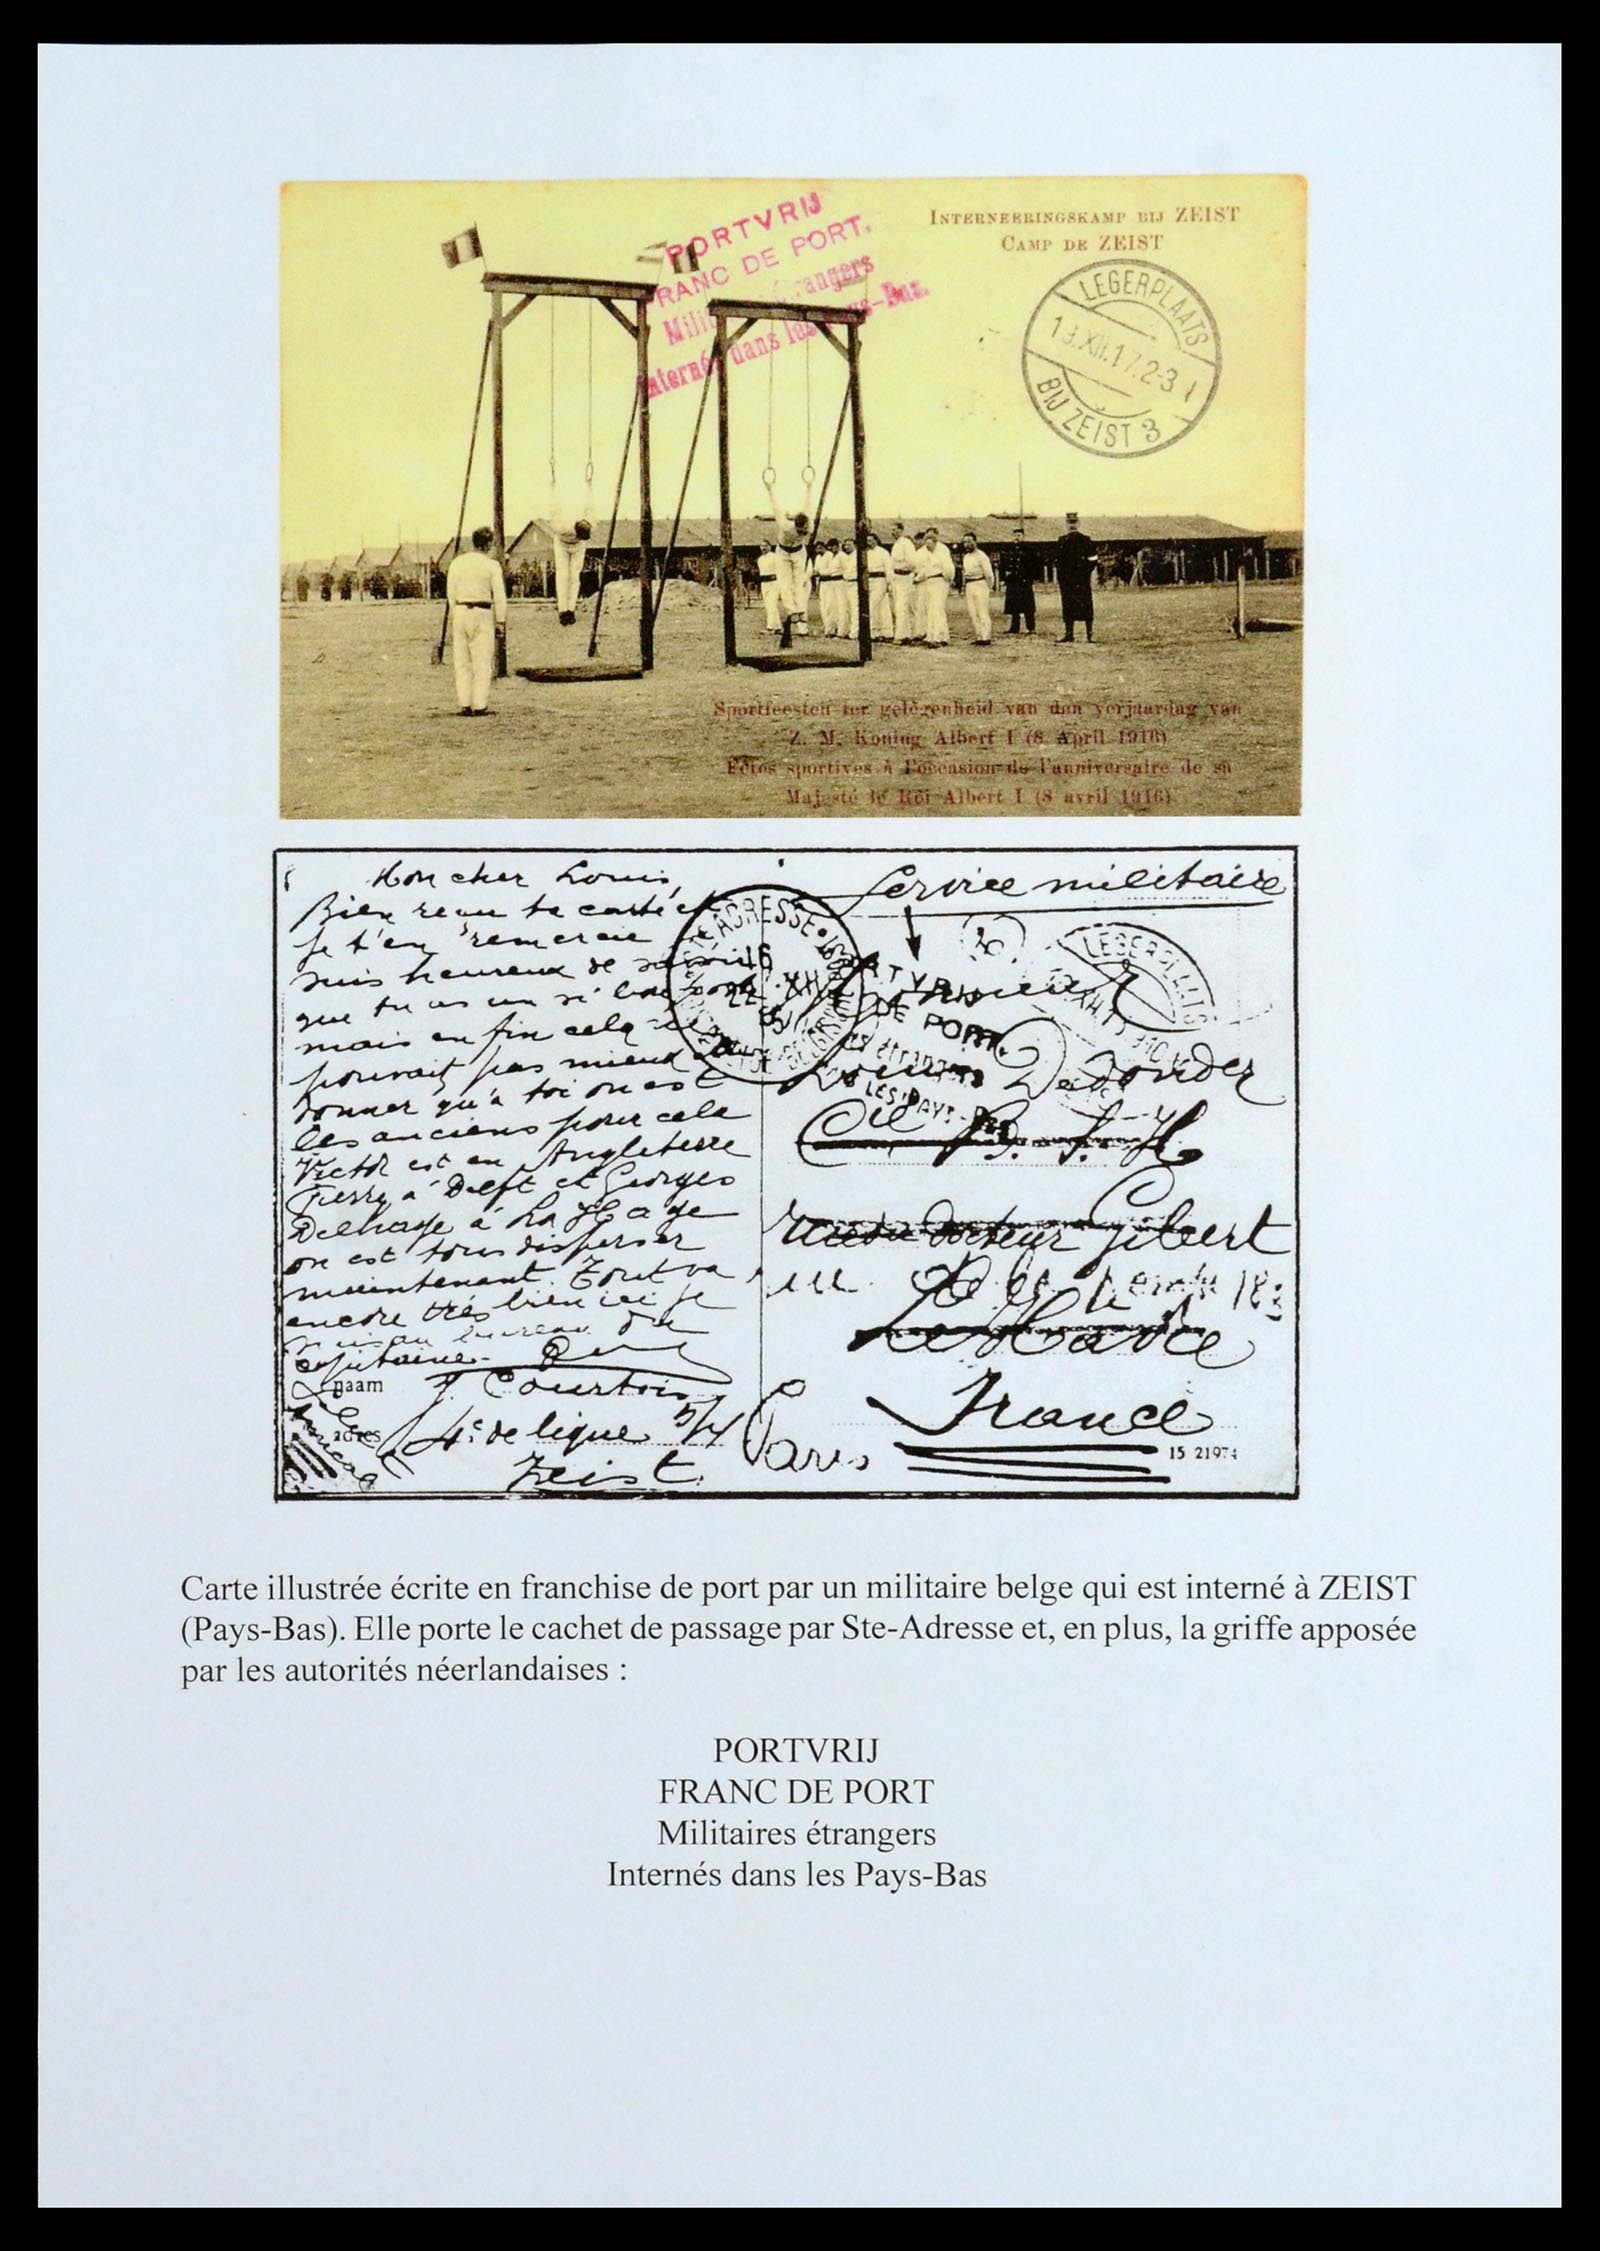 PORTVRIJ
FRANC DE PORT.
Militaires étrangers
Internés dans les Pays-Bas.
INTERNEERINGSKAMP BIJ ZEIST
CAMP DE ZEIST
LEGERPLAATS
13.XII.17.2-3
BIJ ZEIST 3
Sportfeesten ter gelegenheid van den verjaardag van
Z. M. Koning Albert I (8 April 1916)
Fêtes sportives à l'occasion de l'anniversaire de sa
Majesté le Roi Albert I (8 avril 1916)
Mon cher Louis,
Bien reçu ta carte et
je t'en remercie
suis heureux de
que tu as un si bon
mais en fin cela ne
pouvait pas mieux
donner qu'à toi on est
les anciens pour cela
Victor est en Angleterre
Pierre à Delft et Georges
Delhaye à La Haye
on est tous disperser
maintenant. Tout va
encore très bien ici je
suis au bureau du
capitaine.
naam J Courtois
adres 4e de ligne
Zeist.
Service militaire
STE ADRESSE
16
22 XII
PORTVRIJ
DE PORT.
étrangers
LES PAYS-BAS
LEGERPLAATS
Monsieur
Louis Dedonder
Cie
rue du docteur Gilbert
Le Havre
France
Paris
15 21974
Carte illustrée écrite en franchise de port par un militaire belge qui est interné à ZEIST
(Pays-Bas). Elle porte le cachet de passage par Ste-Adresse et, en plus, la griffe apposée
par les autorités néerlandaises :
PORTVRIJ
FRANC DE PORT
Militaires étrangers
Internés dans les Pays-Bas